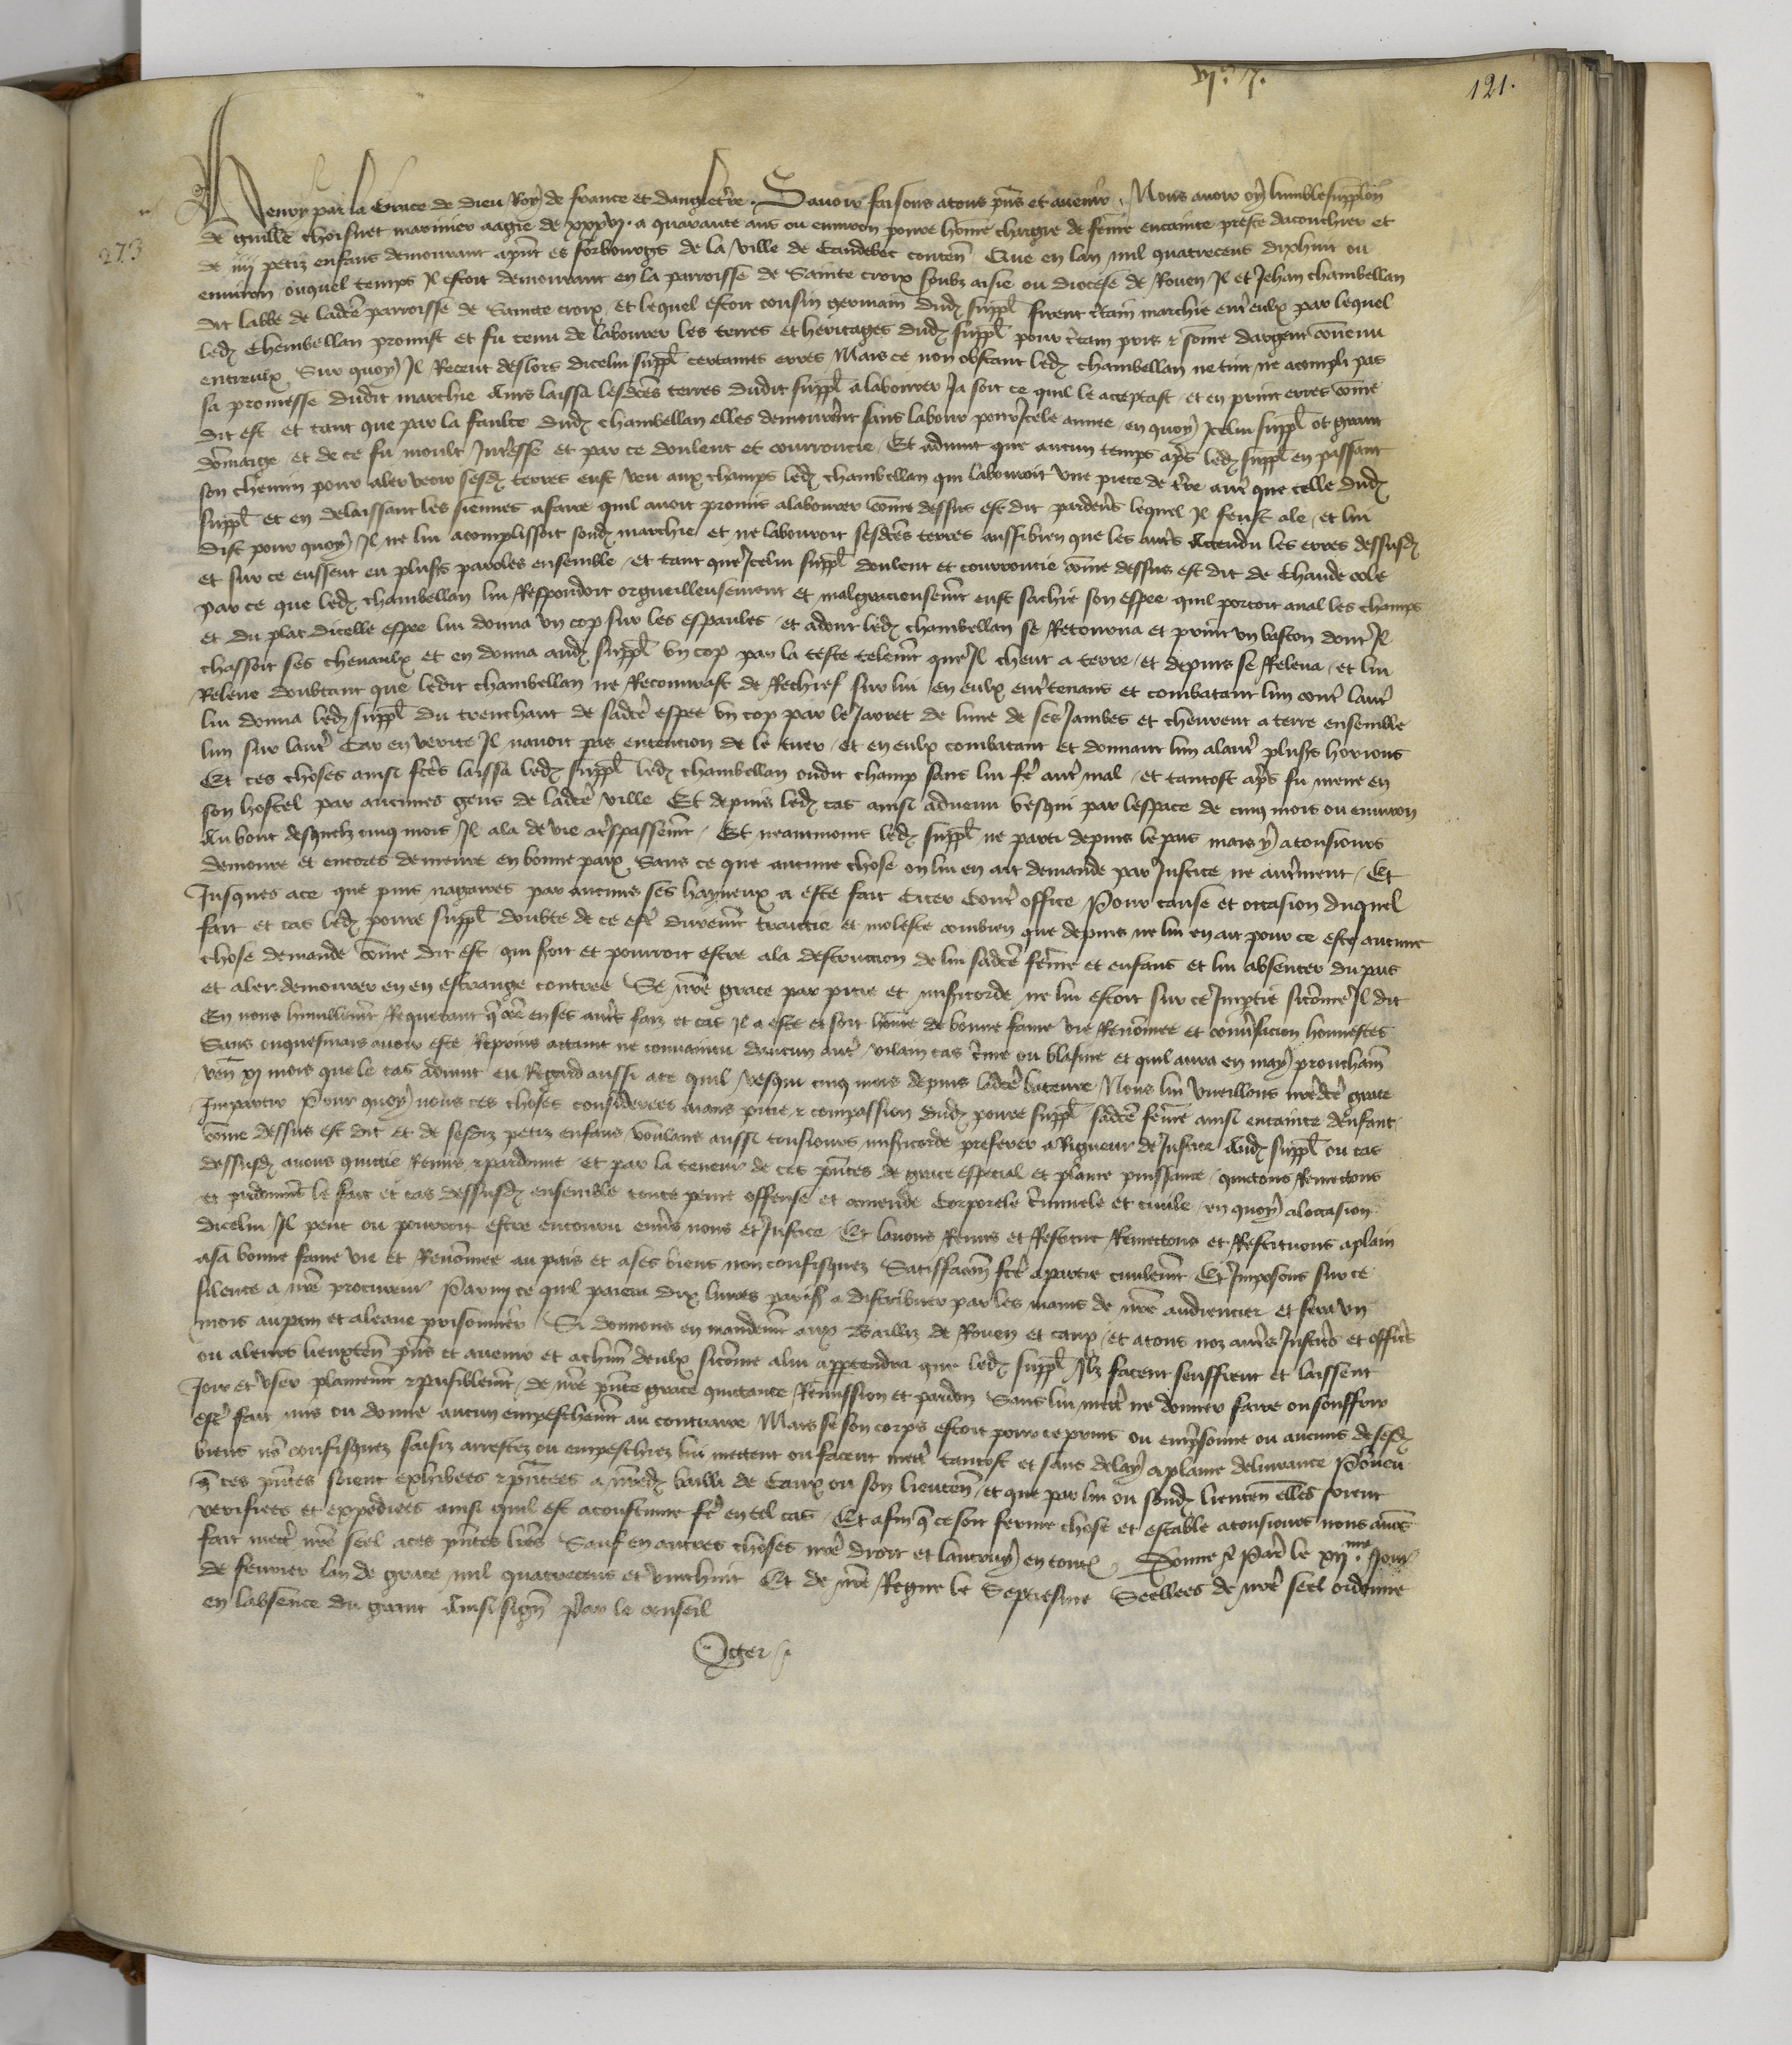 vj^xx 7.
121.
273
Henry par la Grace de dieu Roy de france et dangleterre. Savoir faisons atous pns et avenir. Nous avoir oy lumble supplon
de guillē choisnet marinier aagie de xxxvj a quarante ans ou environ povre hōme chargie de fēme encainte preste dacouchier et
de iiij petiz enfans demourant apnt es forbourgs de la ville de Caudebec conten Que en lan mil quatrecens dixhuit ou
environ ouquel temps Il estoit demourant en la parroisse de Sainte croix soubz aisie ou diocese de Rouen Il et Jehan chambellan
dit labbe de ladcē parroisse de Saincte croix et lequel estoit cousin germain dudz suppl firent ctain marchie entreulx par lequel
ledz Chembellan promist et fu tenu de labourer les terres et heritages dudz suppl pour ctain pris & sōme dargent convenu
entreulx Sur quoy Il Recut deslors dicelui suppl certaines erres Mais ce non obstant ledz chambellan ne tint ne acompli pas
sa promesse dudit marchie Ains laissa lesdces terres dudit suppl alabourer Ja soit ce quil le acceptast et en print erres cōme
dit est et tant que par la faulte dudz chambellan elles demourerent sans labour pour Icele annee en quoy Icelui suppl ot grant
dōmaige et de ce fu moult Intresse et par ce doulent et courroucie Et advint que aucun temps aps ledz suppl en passant
son chemin pour aler veoir sesdz terres eust veu aux champs ledz chambellan qui labouroit une piece de tre autre que celle dudz
suppl et en delaissant les siennes afaire quil avoit promis alabourer cōme dessus est dit pardevs lequel Il feust ale et lui
dist pour quoy Il ne lui acomplissoit sondz marchie et ne labouroit sesdces terres aussibien que les autrs Attendu les erres dessusdz
et sur ce eussent eu plusrs paroles ensemble et tant que Icelui suppl doulent et courroucie cōme dessus est dit de Chaude cole
par ce que ledz chambellan lui Respondoit orgueilleusement et malgracieusemt eust sachie son espee quil portoit aval les champs
et du plat dicelle espee lui donna un cop sur les espaules et adont ledz chambellan se Retourna et print un baston dont Il
chassoit ses chevaulx et en donna audz suppl un cop par la teste telemt que Il cheut a terre et depuis se Releva et lui
Releve doubtant que ledit chambellan ne Recouvrast de Rechief sur lui en eulx entretenans et combatant lun contre lautre
lui donna ledz suppl du trenchant de sadce espee un cop par le Jarret de lune de ses Jambes et cheurent a terre ensemble
lun sur lautre Car en verite Il navoit pas entencion de le tuer et en eulx combatant et donnant lun alautre plusrs horions
Et ces choses ainsi fces laissa ledz suppl ledz chambellan oudit champ sans lui fe autre mal et tantost aps fu mene en
son hostel par aucunes gens de ladce ville Et depuis ledz cas ainsi advenu vesqui par lespace de cinq mois ou environ
Au bout desquelz cinq mois Il ala de vie a trespassemt Et neantmoins ledz suppl ne parti depuis le pais mais y atousiours
demoure et encores demeure en bonne paix Sans ce que aucune chose on lui en ait demande par Justice ne autrement Et
Jusques ace que puis nagaires par aucuns ses hayneux a este fait Citer Contre office Pour cause et occasion duquel
fait et cas ledz povre suppl doubte de ce estre durement traictie et moleste combien que depuis ne lui en ait pour ce este aucune
chose demande cōme dit est qui seroit et pourroit estre ala destruction de lui sadce fēme et enfans et lui absenter du pais
et aler demourer en en estrange contree Se nre grace par pitie et misericorde ne lui estoit sur ce Impartie sicōme Il dit
En nous humblemt Requerant que cōme en ses autrs faiz et cas Il a este et soit hōme de bonne fame vie Renōmee et conversacion honnestes
Sans onquesmais avoir este Reprins attaint ne convaincu daucun autre vilain cas crime ou blasme et quil aura en may prouchain
ven xj mois que le cas advint eu Regard aussi ace quil vesqui cinq mois depuis ladce bateure Nous lui vueillons nredce grace
Impartir Pour quoy nous ces choses considerees aians pitie & compassion dudz povre suppl sadce fēme ainsi encainte denfant
cōme dessus est dit et de sesdiz petiz enfans voulans aussi tousiours misericorde preferer a Rigueur de Justice Audz suppl ou cas
dessusdz avons quictie Remis & pardonne et par la teneur de ces pntes de grace especial et plaine puissance quictons Remettons
et pardonnōs le fait et cas dessusdz ensemble toute peine offense et amende Corporele criminele et civile en quoy aloccasion
dicelui Il peut ou pourroit estre encouru envs nous et Justice Et lavons Remis et Restitue Remettons et Restituons aplain
asa bonne fame vie et Renōmee au pais et ases biens non confisquez Satisfacion fce apartie civilemt Et Imposons sur ce
silence a nre procureur Parmi ce quil paiera dix livres paris a distribuer par les mains de nre audiencier et sera un
mois aupain et aleaue prisonnier Si donnons en mandemt aux Bailliz de Rouen et Caux et atous noz autres Justics et officrs
ou aleurs lieuxten pns et avenir et achun deulx sicōme alui appertendra que ledz suppl Ilz facent seuffrent et laissent
Joir et user plainemt & paisiblemt de nre pnte grace quictance Remission et pardon Sans lui mectre ne donner faire ou souffrir
estre fait mis ou donne aucun empeschemt au contraire Mais se son corps estoit pour ce prins ou emprisonne ou aucuns de sesdz
biens nō confisquez saisiz arrestez ou empeschiez lui mettent ou facent mectre tantost et sans delay aplaine delivrance Pourveu
que ces pntes soient exhibees & pntees a nredz bailli de Caux ou son lieuten et que par lui ou sondz lieuten elles soient
verifiees et expediees ainsi quil est acoustume fe en tel cas Et afin que ce soit ferme chose et estable atousiours nous avōs
fait mectre nre seel aces pntes lres Sauf en autres choses nre droit et lautruy en toutz Donne a Paris le xij^me Jour
de fevrier lan de grace mil quatrecens et vinthuit Et de nre Regne le Septiesme Seellees de nre seel ordonne
en labsence du grant Ainsi signe Par le conseil
Oger